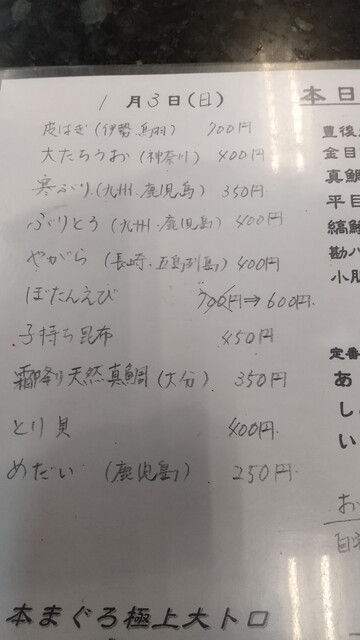 1月3日(日)
皮はぎ(伊勢.鳥羽) 700円
大たちうお(神奈川) 400円
寒ぶり(九州.鹿児島) 350円
ぶりとろ(九州.鹿児島) 400円
やがら(長崎.五島列島) 400円
ぼたんえび 700円⇒600円
子持ち昆布 450円
霜降り天然真鯛(大分) 350円
とり貝 400円
めだい (鹿児島) 250円
本まぐろ極上大トロ
本日
豊後
金目
真鯛
平目
縞鯵
勘八
小肌
定番
あ
し
い
お